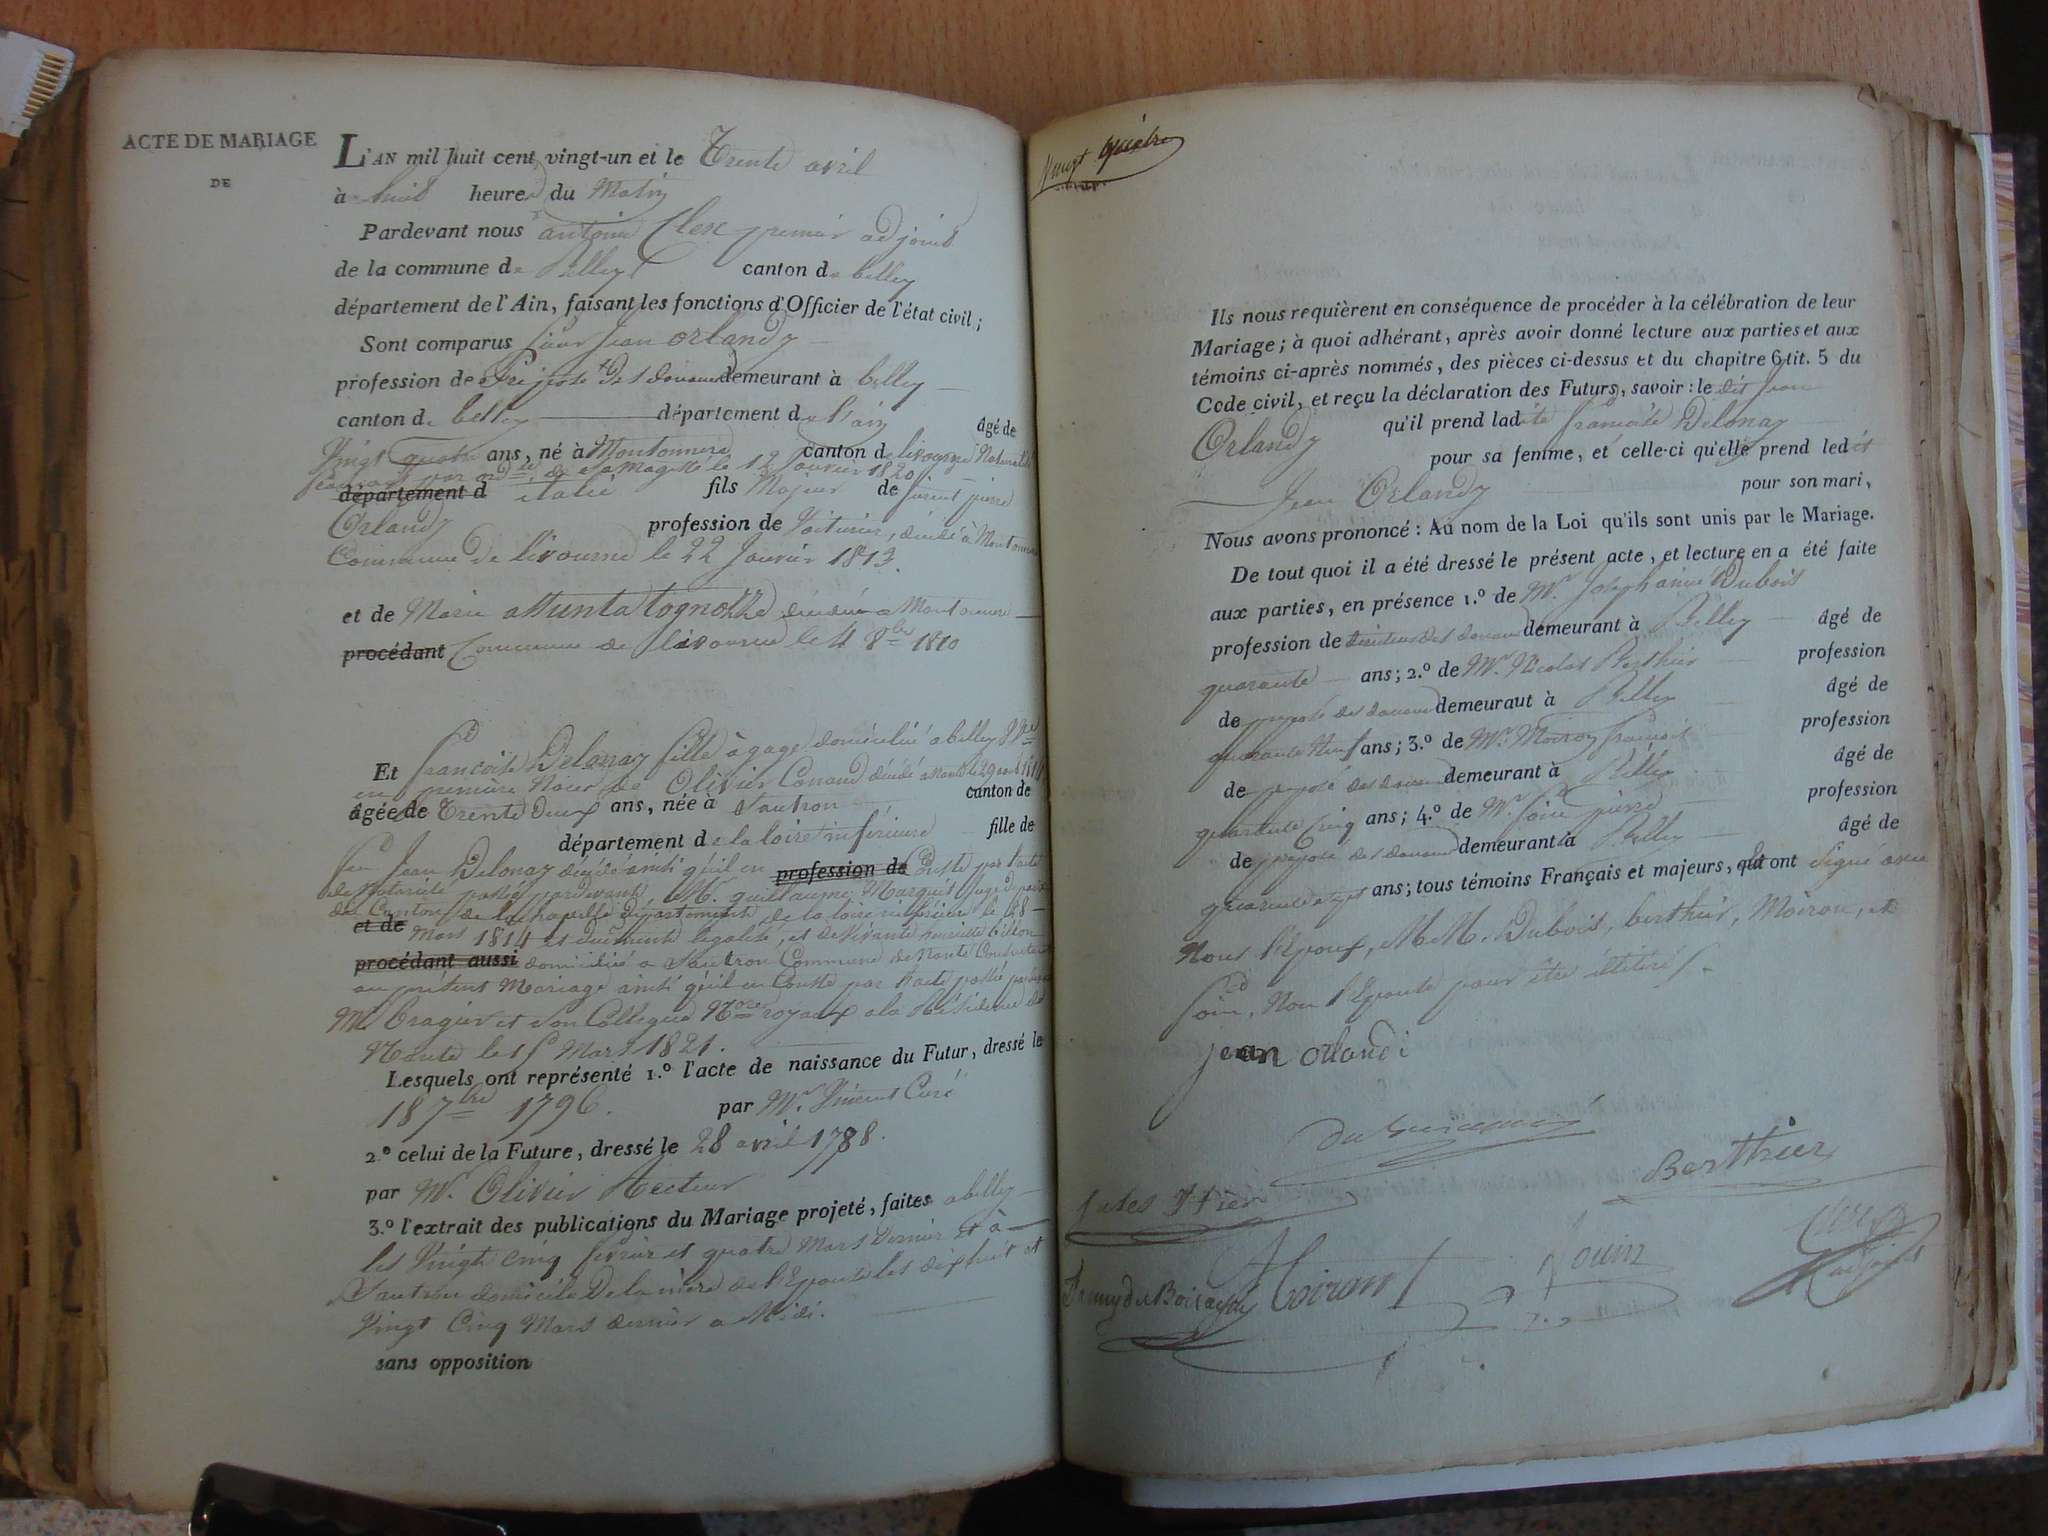 ACTE DE MARIAGE
DE
L'AN mil huit cent vingt-un et le Trente avril
à huit heures du Matin
Pardevant nous antoine Clerc premier adjoint
de la commune de Belley canton de belley
département de l'Ain, faisant les fonctions d'Officier de l'état civil;
Sont comparus Jean Orlandy
profession de Préposé des douanes demeurant à belley
canton de belley département de l'ain âgé de
Vingt quatre ans, né à Montonnero canton de livourne
par de sa Majesté le 12 Janvier 1820
département d italie fils Majeur de pierre
Orlandy profession de Voiturier, décédé à
Commune de livourne le 22 Janvier 1813.
et de Marie attunta tognotte décédée a
procédant Commune de livourne le 4 8bre 1810
Et francoise Delonay fille à gage domiciliée a belley
en premiere Noce de Olivier Conaud décédé a
âgée de Trente Deux ans, née à Sautron canton de
département de la loire inférieure fille de
feu Jean Delonay décédé ainsi qu'il en profession de Conste par l'acte
de Notoriété passé pardevant M. guillaume Marquis Juge de paix
du Canton de la chapelle département de la loire inférieure le 18
et de Mars 1814 et duement légalisé, et de vivante
procédant aussi domiciliée a Sautron Commune de Nante
au présent Mariage ainsi qu'il en Conste par l'acte passé
M. et son Collegue Nres royaux a la Résidence de
Nante le 15 Mars 1821.
Lesquels ont représenté 1.º l'acte de naissance du Futur, dressé le
18 7bre 1796. par Mr. Vincent Curé
2.º celui de la Future, dressé le 28 avril 1788.
par Mr. Olivier Recteur
3.º l'extrait des publications du Mariage projeté, faites a belley
les Vingt cinq fevrier et quatre Mars dernier et à
Sautron domicile De la mère de l'Epouse les dix huit et
Vingt Cinq Mars dernier a Midi.
sans opposition
Vingt Quatre
Ils nous requièrent en conséquence de procéder à la célébration de leur
Mariage; à quoi adhérant, après avoir donné lecture aux parties et aux
témoins ci-après nommés, des pièces ci-dessus et du chapitre 6 tit. 5 du
Code civil, et reçu la déclaration des Futurs, savoir: le dit Jean
Orlandy qu'il prend ladite francoise Delonay
pour sa femme, et celle-ci qu'elle prend ledit
Jean Orlandy pour son mari,
Nous avons prononcé: Au nom de la Loi qu'ils sont unis par le Mariage.
De tout quoi il a été dressé le présent acte, et lecture en a été faite
aux parties, en présence 1.º de Mr. Joseph aimé Dubois
profession de des douanes demeurant à Belley âgé de
quarante ans; 2.º de Mr. Nicolas Berthier profession
de préposé des douanes demeuraut à Belley âgé de
quarante Neuf ans; 3.º de Mr. Moiron francois profession
de préposé des douanes demeurant à Belley âgé de
quarante Cinq ans; 4.º de Mr. pierre profession
de préposé des douanes demeurant à Belley âgé de
quarante sept ans; tous témoins Français et majeurs, qui ont Signé avec
Nous l'Epoux, M.M. Dubois, berthier, Moiron, et
Non l'Epouse pour être illitéré.
jean orlandi
Berthier
Moiron
adjoint